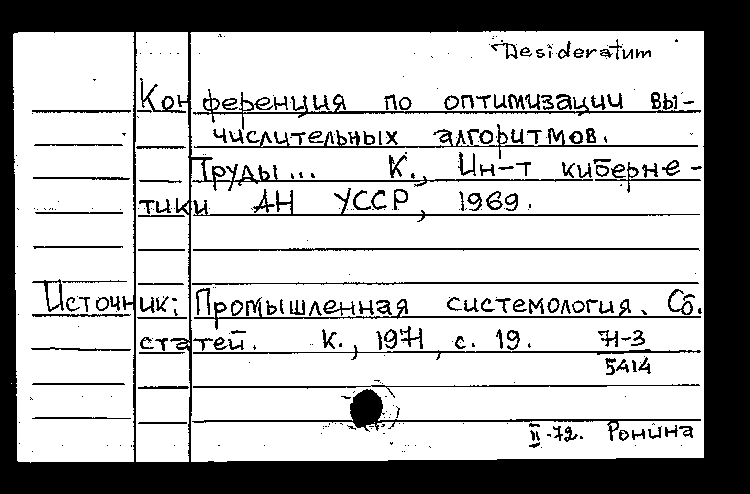 Desideratum
Конференция по оптимизации вы-
числительных алгоритмов.
Труды... К., Ин-т киберне-
тики АН УССР, 1969.
Источник: Промышленная системология. Сб.
статей. К., 1971, с. 19. 71-3
5414
II-72. Ронина